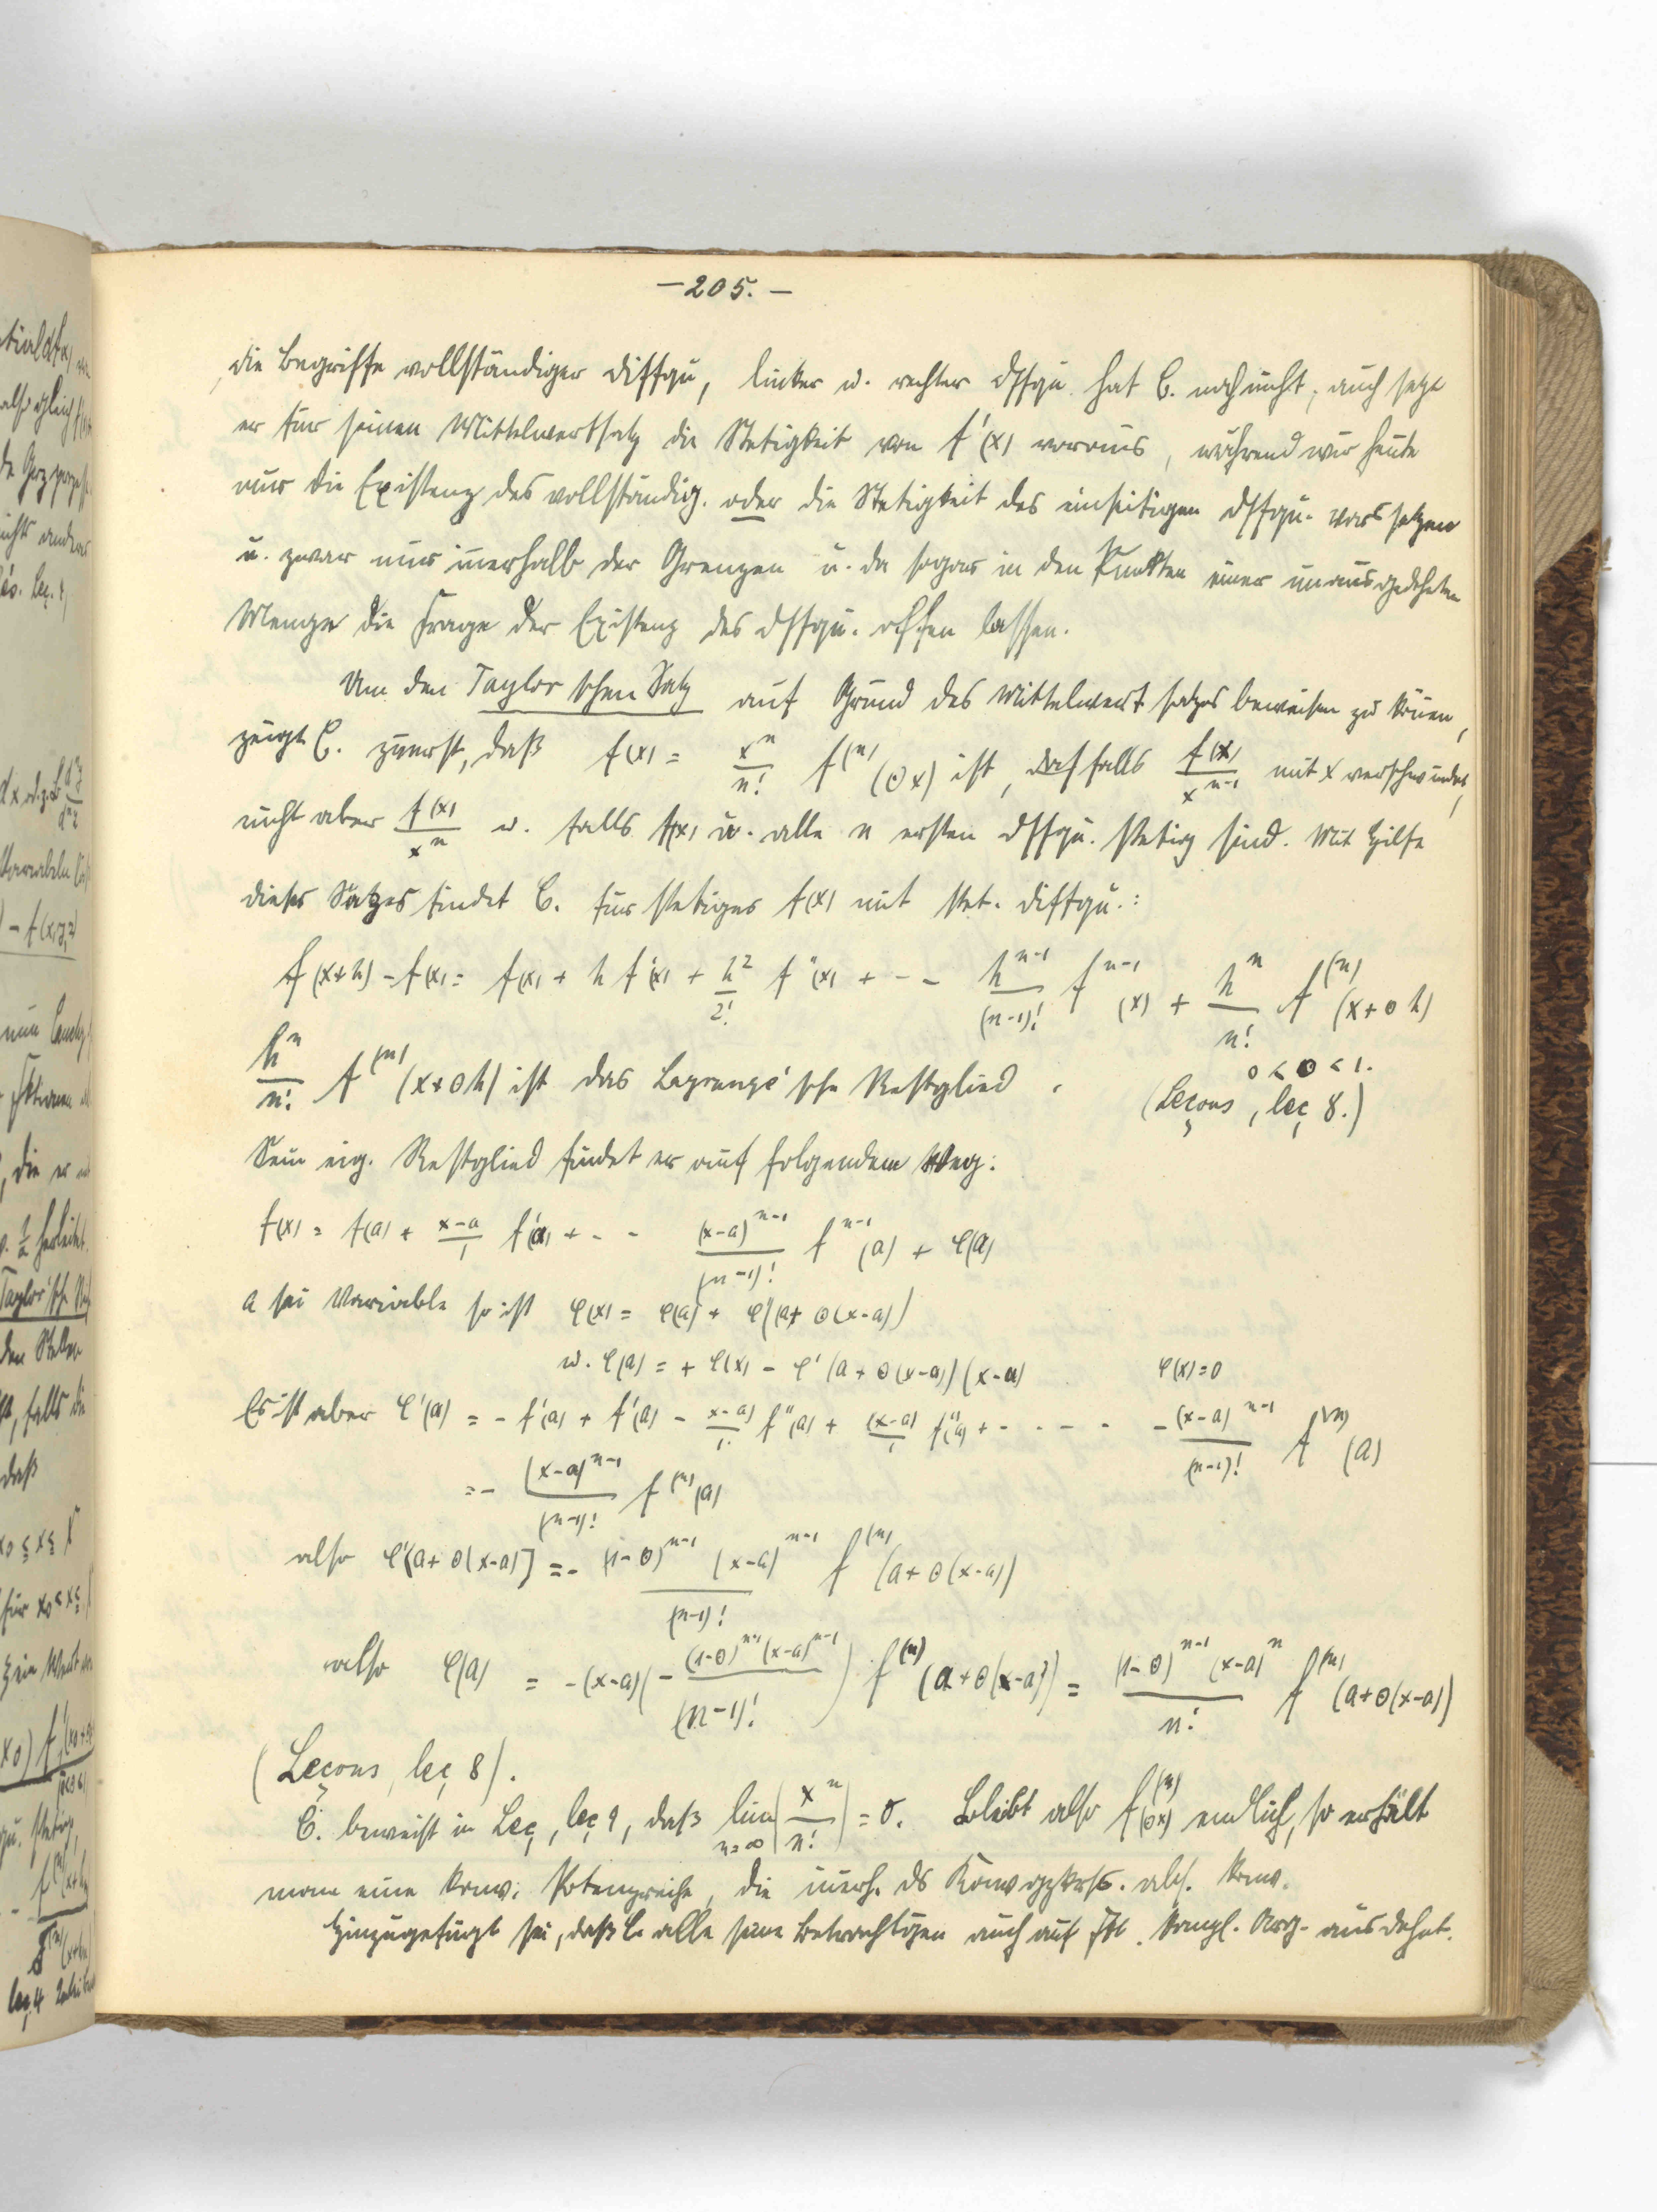 – 205. –
die Begriffe vollständiger Diffqu, linker u. rechter Dffqu. hat C. noch nicht; auch setzt
er für seinen Mittelwertsatz die Stetigkeit von f'(x) voraus, während wir heute
nur die Existenz des vollständig. oder die Stetigkeit des einseitigen Dffqu. vorssetzen
u. zwar nur innerhalb der Grenzen u. da sogar in den Punkten einer unausgedehnten
Menge die Frage der Existenz des Dffqu. offen lassen.
Um den Taylor'schen Satz auf Grund des Mittelwertsatzes beweisen zu können,
zeigt C. zuerst, daß f(x) = x^n/n! f^(n)(Θx) ist, falls f(x)/x^{n-1} mit x verschwindet,
nicht aber f(x)/x^n u. falls f(x) u. alle n ersten Dffqu. stetig sind. Mit Hilfe
dieses Satzes findet C. für stetiges f(x) mit stet. Diffqu.:
f(x+h) – f(x) = f(x) + h f'(x) + h²/2! f''(x) + - - h^{n-1}/(n-1)! f^{n-1}(x) + h^n/n! f^(n)(x+Θh)
0 < Θ < 1.
h^n/n! f^(n)(x+Θh) ist das Lagrange'sche Restglied.
(Leçons, leç 8.)
Sein eig. Restglied findet er auf folgendem Weg:
f(x) = f(a) + (x-a)/1 f'(a) + - - (x-a)^{n-1}/(n-1)! f^{n-1}(a) + φ(a)
a sei Variable so ist φ(x) = φ(a) + φ'(a+Θ(x-a))
u. φ(a) = + φ(x) – φ'(a+Θ(x-a))(x-a) φ(x)=0
Es ist aber φ'(a) = – f'(a) + f'(a) – (x-a)/1! f''(a) + (x-a)/1 f''(a) + - - - - – (x-a)^{n-1}/(n-1)! f^(n)(a)
= – (x-a)^{n-1}/(n-1)! f^(n)(a)
also φ'[a+Θ(x-a)] = – (1-Θ)^{n-1} (x-a)^{n-1}/(n-1)! f^(n)(a+Θ(x-a))
also φ(a) = –(x-a)(– (1-Θ)^{n-1}(x-a)^{n-1}/(n-1)!) f^(n)(a+Θ(x-a)) = (1-Θ)^{n-1}(x-a)^n/n! f^(n)(a+Θ(x-a))
(Leçons, leç 8).
C. beweist in Leç, leç 9, daß lim_{n=∞}(x^n/n!) = 0. Bleibt also f^(n)(Θx) endlich, so erhält
man eine konv. Potenzreihe, die innerh. ds abs. konv.
Hinzugefügt sei, daß C. alle seine Betrachtgen auch auf kompl. Arg. ausdehnt.